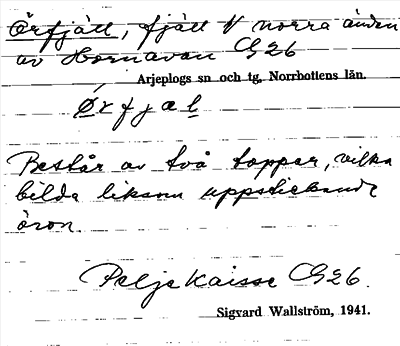 Örfjäll, fjäll V norra änden
av Hornavan C926
Arjeplogs sn och tg, Norrbottens län.
Ørfjæl
Består av två toppar, vilka
bilda liksom uppstickande
öron.
Peljekaisse C926.
Sigvard Wallström, 1941.